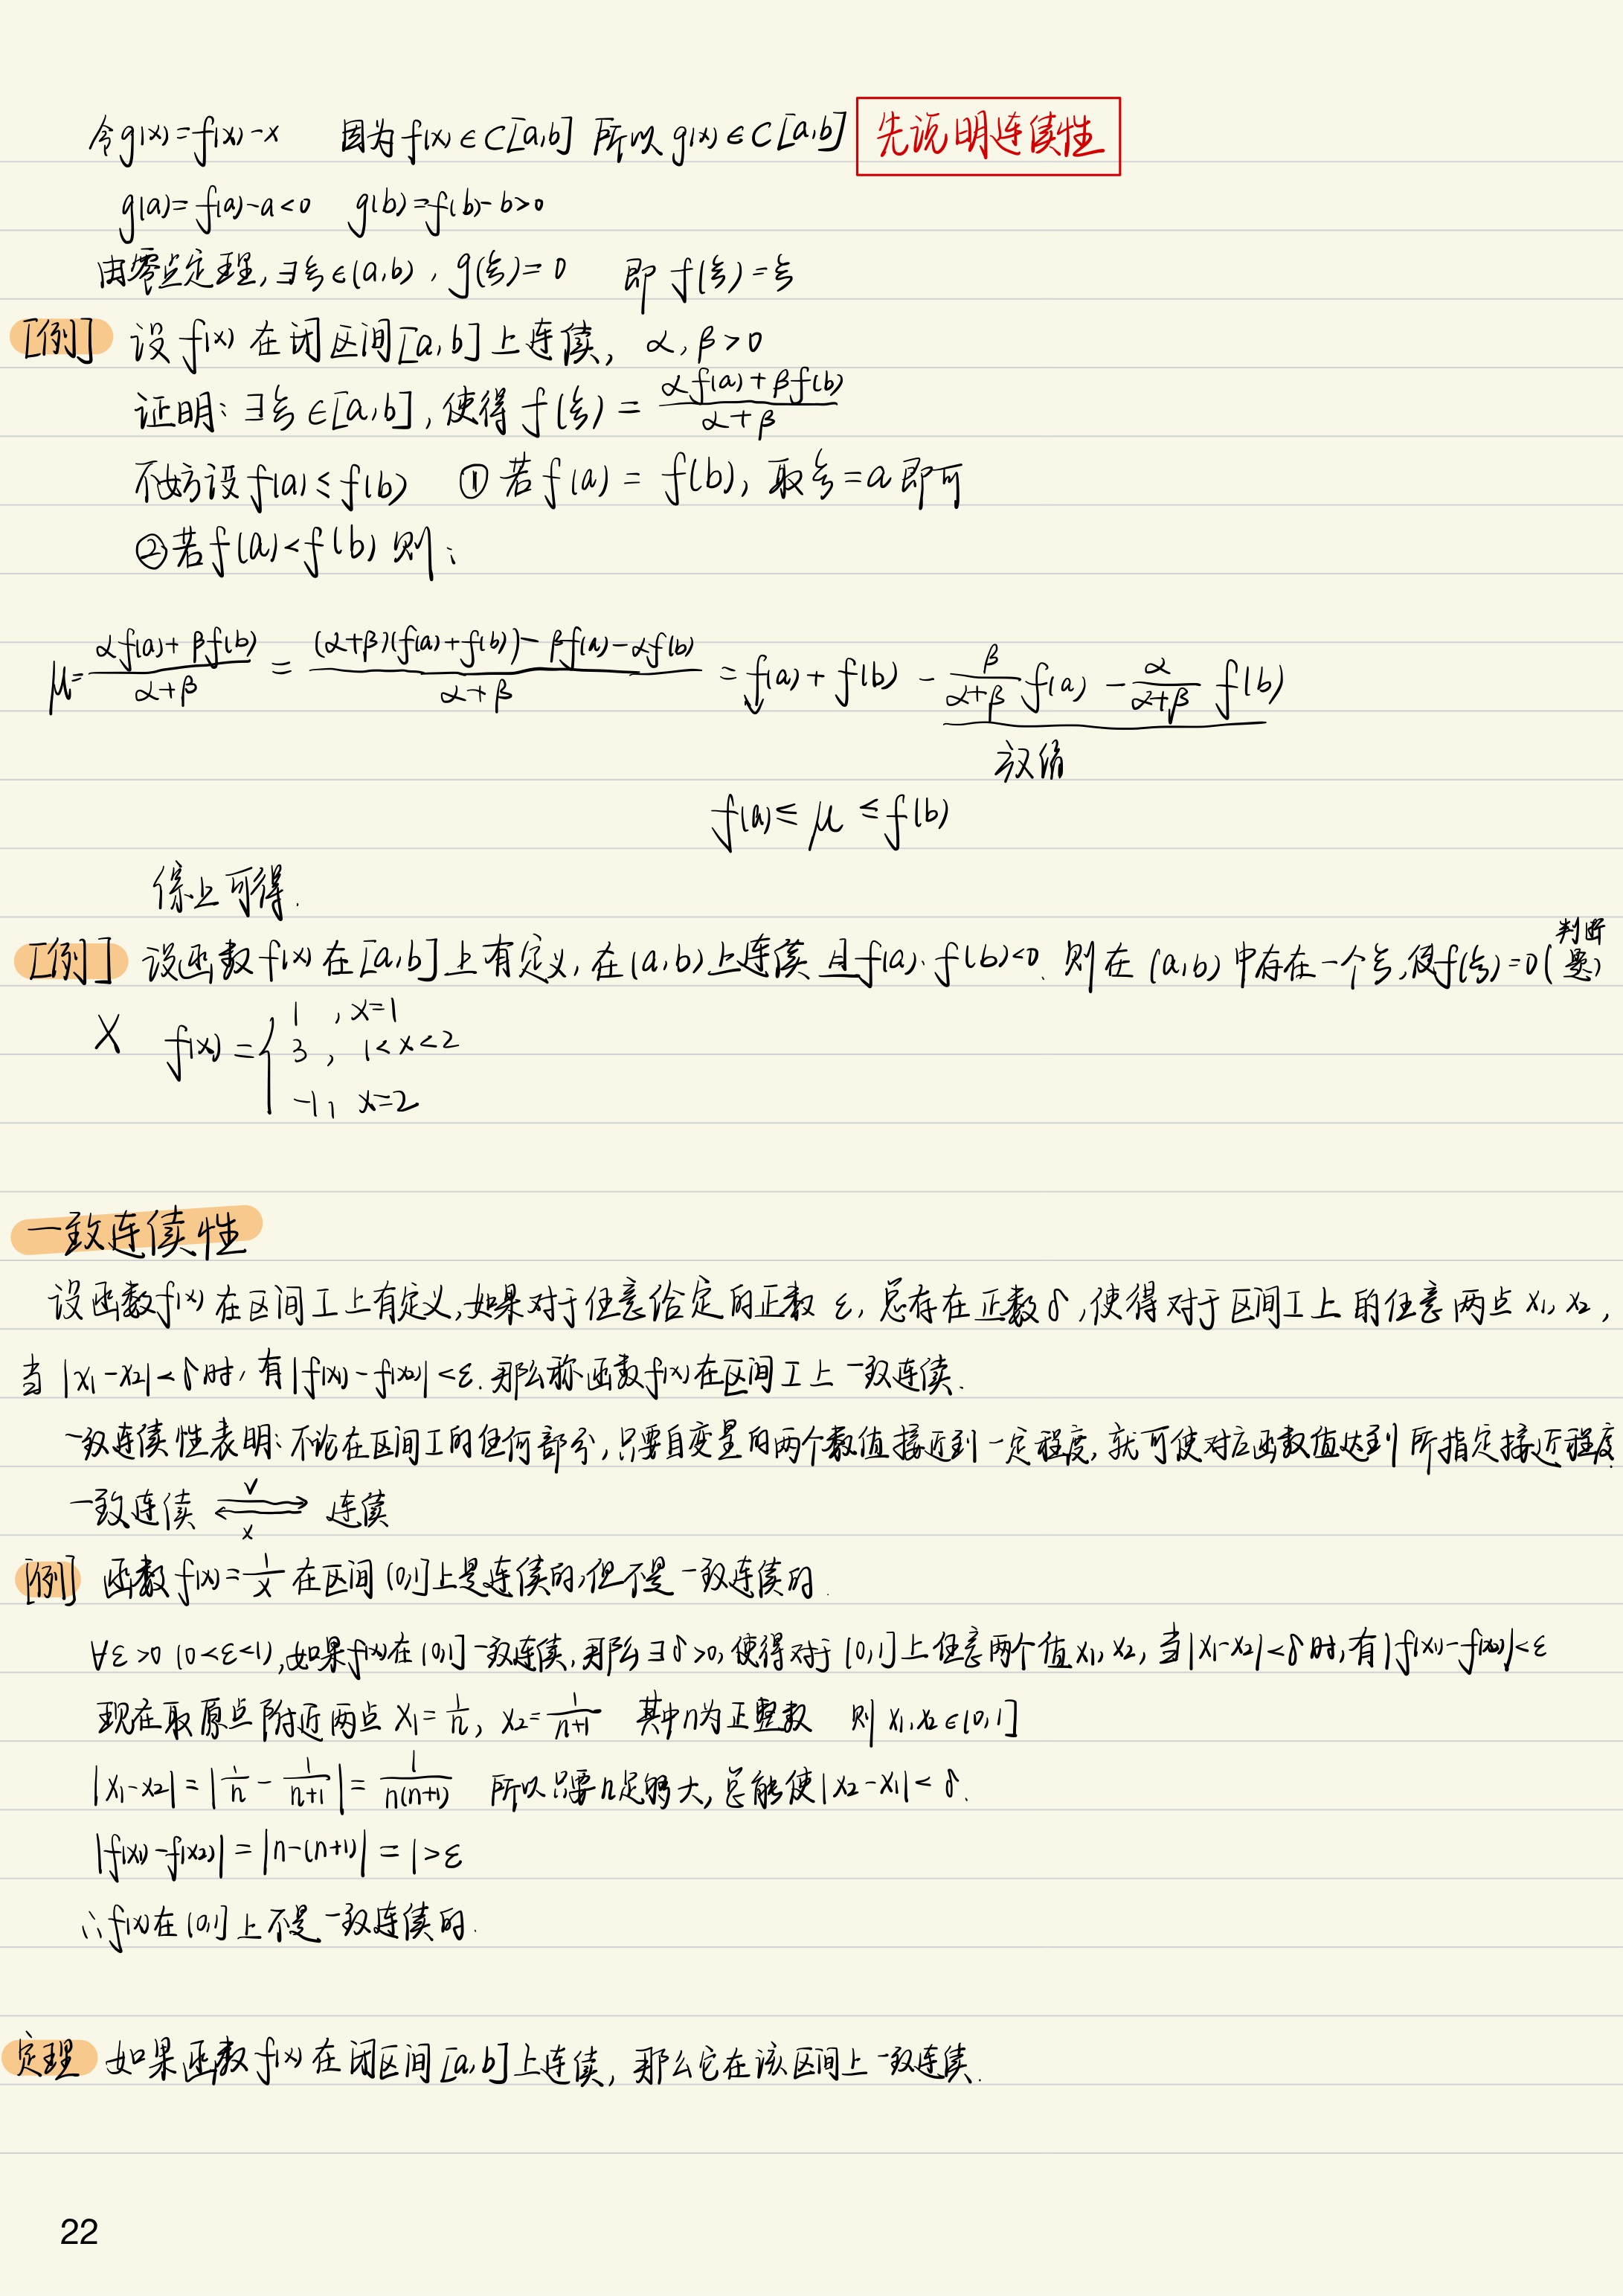 令g(x)=f(x)-x 因为f(x)∈C[a,b] 所以g(x)∈C[a,b] 先说明连续性
g(a)=f(a)-a<0 g(b)=f(b)-b>0
由零点定理,∃ξ∈(a,b),g(ξ)=0 即 f(ξ)=ξ
[例] 设f(x)在闭区间[a,b]上连续, α,β>0
证明:∃ξ∈[a,b],使得f(ξ)=(αf(a)+βf(b))/(α+β)
不妨设f(a)≤f(b) ①若f(a)=f(b),取ξ=a即可
②若f(a)<f(b)则:
μ=(αf(a)+βf(b))/(α+β)=((α+β)(f(a)+f(b))-βf(a)-αf(b))/(α+β)=f(a)+f(b)-β/(α+β)f(a)-α/(α+β)f(b)
放缩
f(a)≤μ≤f(b)
综上可得.
[例] 设函数f(x)在[a,b]上有定义,在(a,b)上连续且f(a)·f(b)<0.则在(a,b)中存在一个ξ,使f(ξ)=0(判断题)
X f(x)={1 ,x=1
3, 1<x<2
-1, x=2
一致连续性
设函数f(x)在区间I上有定义,如果对于任意给定的正数ε,总存在正数δ,使得对于区间I上的任意两点x₁,x₂,
当|x₁-x₂|<δ时,有|f(x₁)-f(x₂)|<ε.那么称函数f(x)在区间I上一致连续.
一致连续性表明:不论在区间I的任何部分,只要自变量的两个数值接近到一定程度,就可使对应函数值达到所指定接近程度.
一致连续 ⇄ (√ x) 连续
[例] 函数f(x)=1/x在区间(0,1]上是连续的,但不是一致连续的.
∀ε>0(0<ε<1),如果f(x)在(0,1]一致连续,那么∃δ>0,使得对于(0,1]上任意两个值x₁,x₂,当|x₁-x₂|<δ时,有|f(x₁)-f(x₂)|<ε
现在取原点附近两点x₁=1/n, x₂=1/(n+1) 其中n为正整数 则x₁,x₂∈(0,1]
|x₁-x₂|=|1/n-1/(n+1)|=1/(n(n+1)) 所以只要n足够大,总能使|x₂-x₁|<δ.
|f(x₁)-f(x₂)|=|n-(n+1)|=1>ε
∴f(x)在(0,1]上不是一致连续的.
定理 如果函数f(x)在闭区间[a,b]上连续,那么它在该区间上一致连续.
22